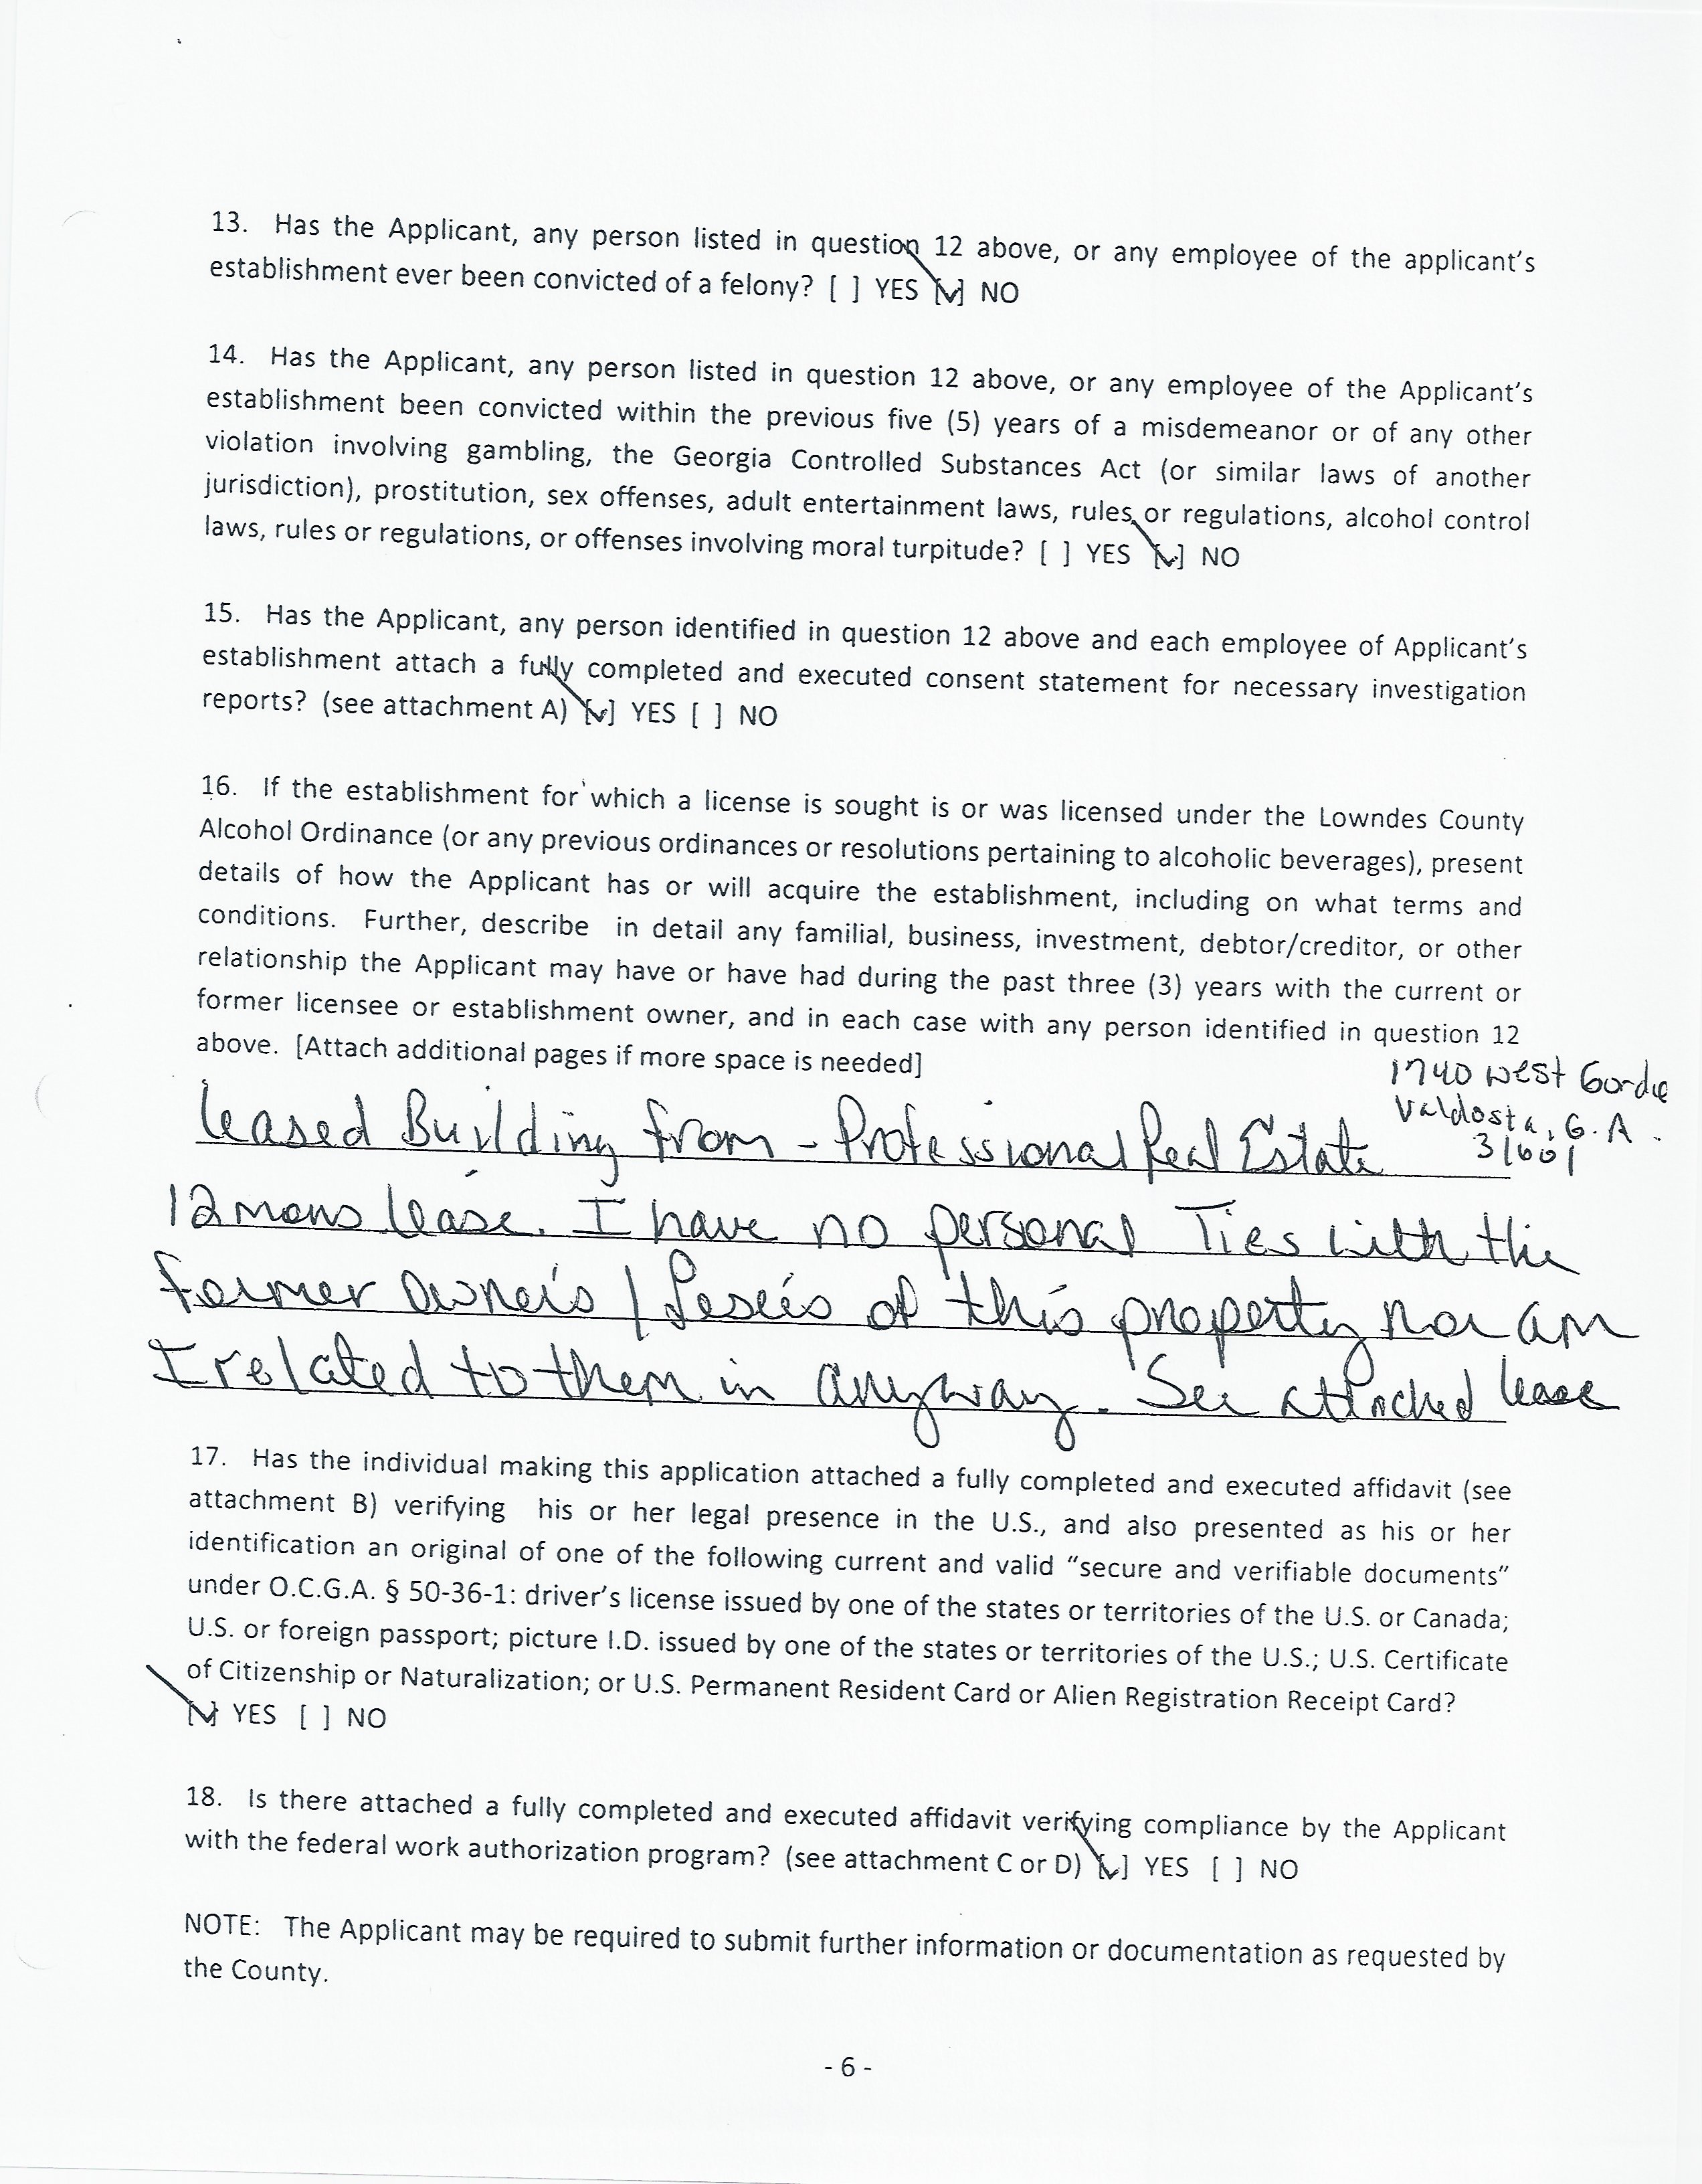 13. Has the Applicant, any person listed in question 12 above, or any employee of the applicant's
establishment ever been convicted of a felony? [ ] YES [✓] NO
14. Has the Applicant, any person listed in question 12 above, or any employee of the Applicant's
establishment been convicted within the previous five (5) years of a misdemeanor or of any other
violation involving gambling, the Georgia Controlled Substances Act (or similar laws of another
jurisdiction), prostitution, sex offenses, adult entertainment laws, rules or regulations, alcohol control
laws, rules or regulations, or offenses involving moral turpitude? [ ] YES [✓] NO
15. Has the Applicant, any person identified in question 12 above and each employee of Applicant's
establishment attach a fully completed and executed consent statement for necessary investigation
reports? (see attachment A) [✓] YES [ ] NO
16. If the establishment for which a license is sought is or was licensed under the Lowndes County
Alcohol Ordinance (or any previous ordinances or resolutions pertaining to alcoholic beverages), present
details of how the Applicant has or will acquire the establishment, including on what terms and
conditions. Further, describe in detail any familial, business, investment, debtor/creditor, or other
relationship the Applicant may have or have had during the past three (3) years with the current or
former licensee or establishment owner, and in each case with any person identified in question 12
above. [Attach additional pages if more space is needed]
1740 West Gordo
Valdosta, G.A.
31601
Leased Building from - Professional Real Estate
12 mons lease. I have no personal Ties with the
former owners / Lesees of this property nor am
I related to them in anyway. See attached lease
17. Has the individual making this application attached a fully completed and executed affidavit (see
attachment B) verifying his or her legal presence in the U.S., and also presented as his or her
identification an original of one of the following current and valid "secure and verifiable documents"
under O.C.G.A. § 50-36-1: driver's license issued by one of the states or territories of the U.S. or Canada;
U.S. or foreign passport; picture I.D. issued by one of the states or territories of the U.S.; U.S. Certificate
of Citizenship or Naturalization; or U.S. Permanent Resident Card or Alien Registration Receipt Card?
[✓] YES [ ] NO
18. Is there attached a fully completed and executed affidavit verifying compliance by the Applicant
with the federal work authorization program? (see attachment C or D) [✓] YES [ ] NO
NOTE: The Applicant may be required to submit further information or documentation as requested by
the County.
- 6 -